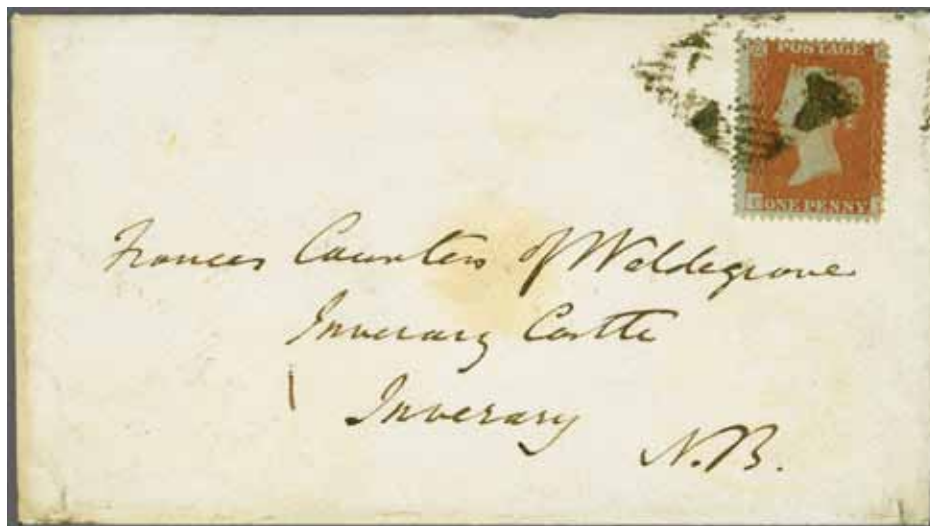 POSTAGE
ONE PENNY
Frances Countess of Waldegrave
Inverary Castle
Inverary
N.B.